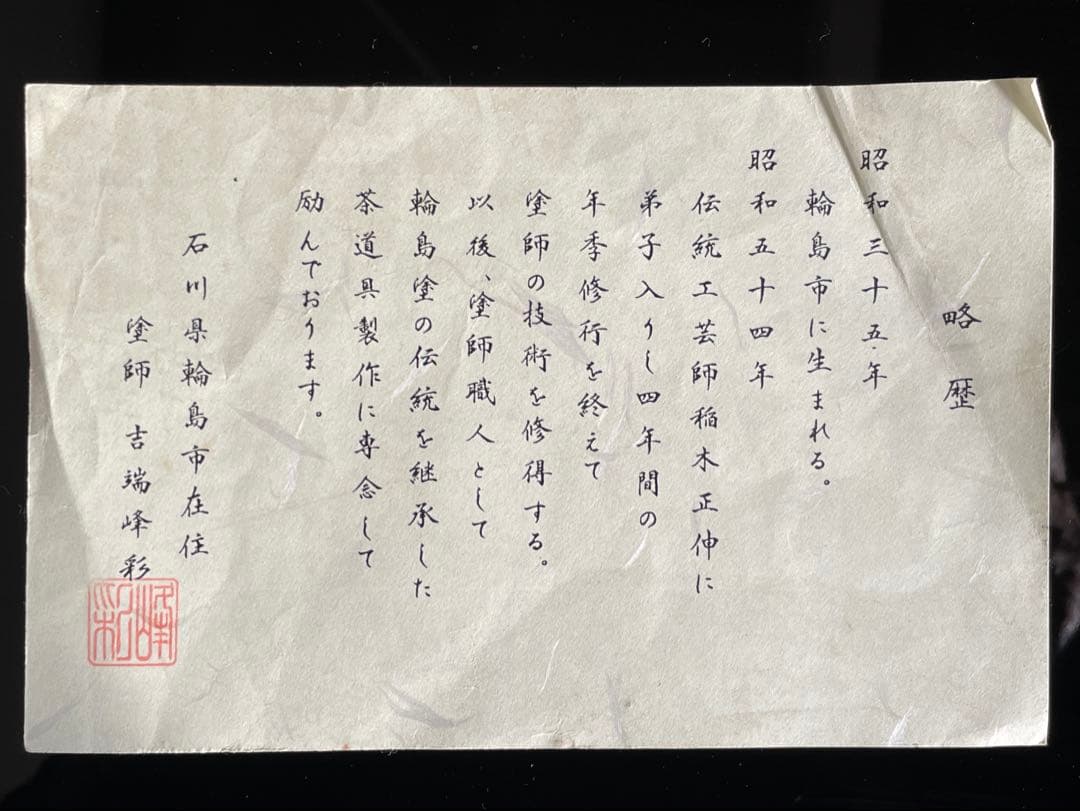 略歴
昭和三十五年
輪島市に生まれる。
昭和五十四年
伝統工芸師稲木正伸に
弟子入りし四年間の
年季修行を終えて
塗師の技術を修得する。
以後、塗師職人として
輪島塗の伝統を継承した
茶道具製作に専念して
励んでおります。
石川県輪島市在住
塗師 吉端峰彩
峰彩